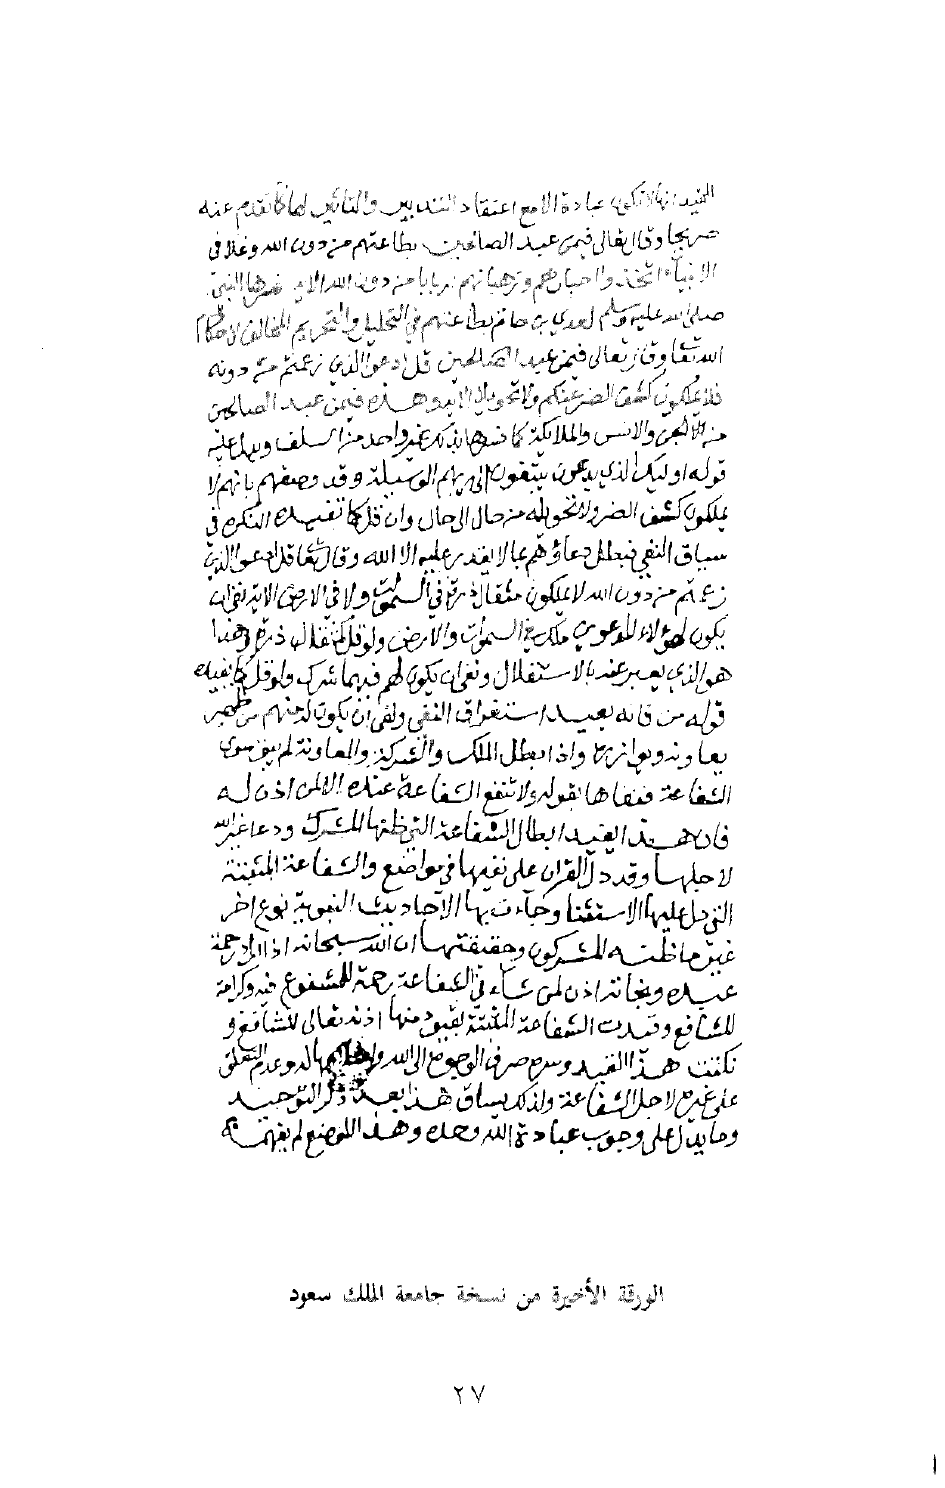 انها لا تكون عبادة الا مع اعتقاد التدبير والتاثير لها كما تقدم عنه
صريحا وقال تعالى فيمن عبد الصالحين بطاعتهم من دون الله وغلا في
الانبياء اتخذوا احبارهم ورهبانهم اربابا من دون الله الاية فسرها النبي
صلى الله عليه وسلم لعدي بن حاتم بطاعتهم في التحليل والتحريم المخالف لاحكام
الله تعالى وقال تعالى فيمن عبد الصالحين قل ادعوا الذين زعمتم من دونه
فلا يملكون كشف الضر عنكم ولا تحويلا الاية وهذه فيمن عبد الصالحين
من الجن والانس والملائكة كما فسرها بذلك غير واحد من السلف ويدل عليه
قوله اوليك الذين يدعون يبتغون الى ربهم الوسيلة وقد وصفهم بانهم لا
يملكون كشف الضر ولا تحويله من حال الى حال وان قل كما تفيده النكرة في
سياق النفي فبطل دعاؤهم بما لا يقدر عليه الا الله وقال تعالى قل ادعوا الذين
زعمتم من دون الله لا يملكون مثقال ذرة في السموات ولا في الارض الاية نفى ان
يكون لهؤلاء المدعوين ملك في السموات والارض ولو قل كمثقال ذرة وهذا
هو الذي يعبر عنه بالاستقلال ونفى ان يكون لهم فيهما شرك ولو قل كما يفيده
قوله من فانه يفيد استغراق النفي ونفى ان يكون له منهم من ظهير
يعاونه ويوازره واذا بطل الملك والشركة والمعاونة لم يبق سوى
الشفاعة فنفاها بقوله ولا تنفع الشفاعة عنده الا لمن اذن له
فان هذا يفيد ابطال الشفاعة التي ظنها المشرك ودعا غير الله
لاجلها وقد دل القران على نفيها في مواضع والشفاعة المثبتة
التي دل عليها الاستثنا وجاءت بها الاحاديث النبوية نوع اخر
غير ما ظنه المشركون وحقيقتها ان الله سبحانه اذا اراد رحمة
عبده ونجاته اذن لمن شاء في الشفاعة رحمة للمشفوع فيه وكرامة
للشافع وقيدت الشفاعة المثبتة بقيود منها اذنه تعالى للشافع و
نكتت هذا القيد وسره صرف الوجوه الى الله له وعدم التعلق
على غيره لاجل الشفاعة ولذلك يساق هذا بعد ذكر التوحيد
وما يدل على وجوب عبادة الله وحده وهذا الموضع لم يفهمه
الورقة الأخيرة من نسخة جامعة الملك سعود
٢٧